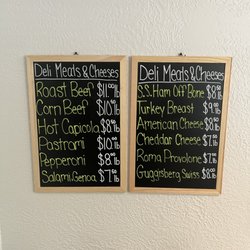 Deli Meats & Cheeses
Roast Beef $11.00 lb
Corn Beef $10.50 lb
Hot Capicola $8.50 lb
Pastrami $10.00 lb
Pepperoni $8.50 lb
Salami, Genoa $7.50 lb
Deli Meats & Cheeses
S.S. Ham Off Bone $8.50 lb
Turkey Breast $9.50 lb
American Cheese $8.00 lb
Cheddar Cheese $7.50 lb
Roma Provolone $7.50 lb
Guggisberg Swiss $8.00 lb